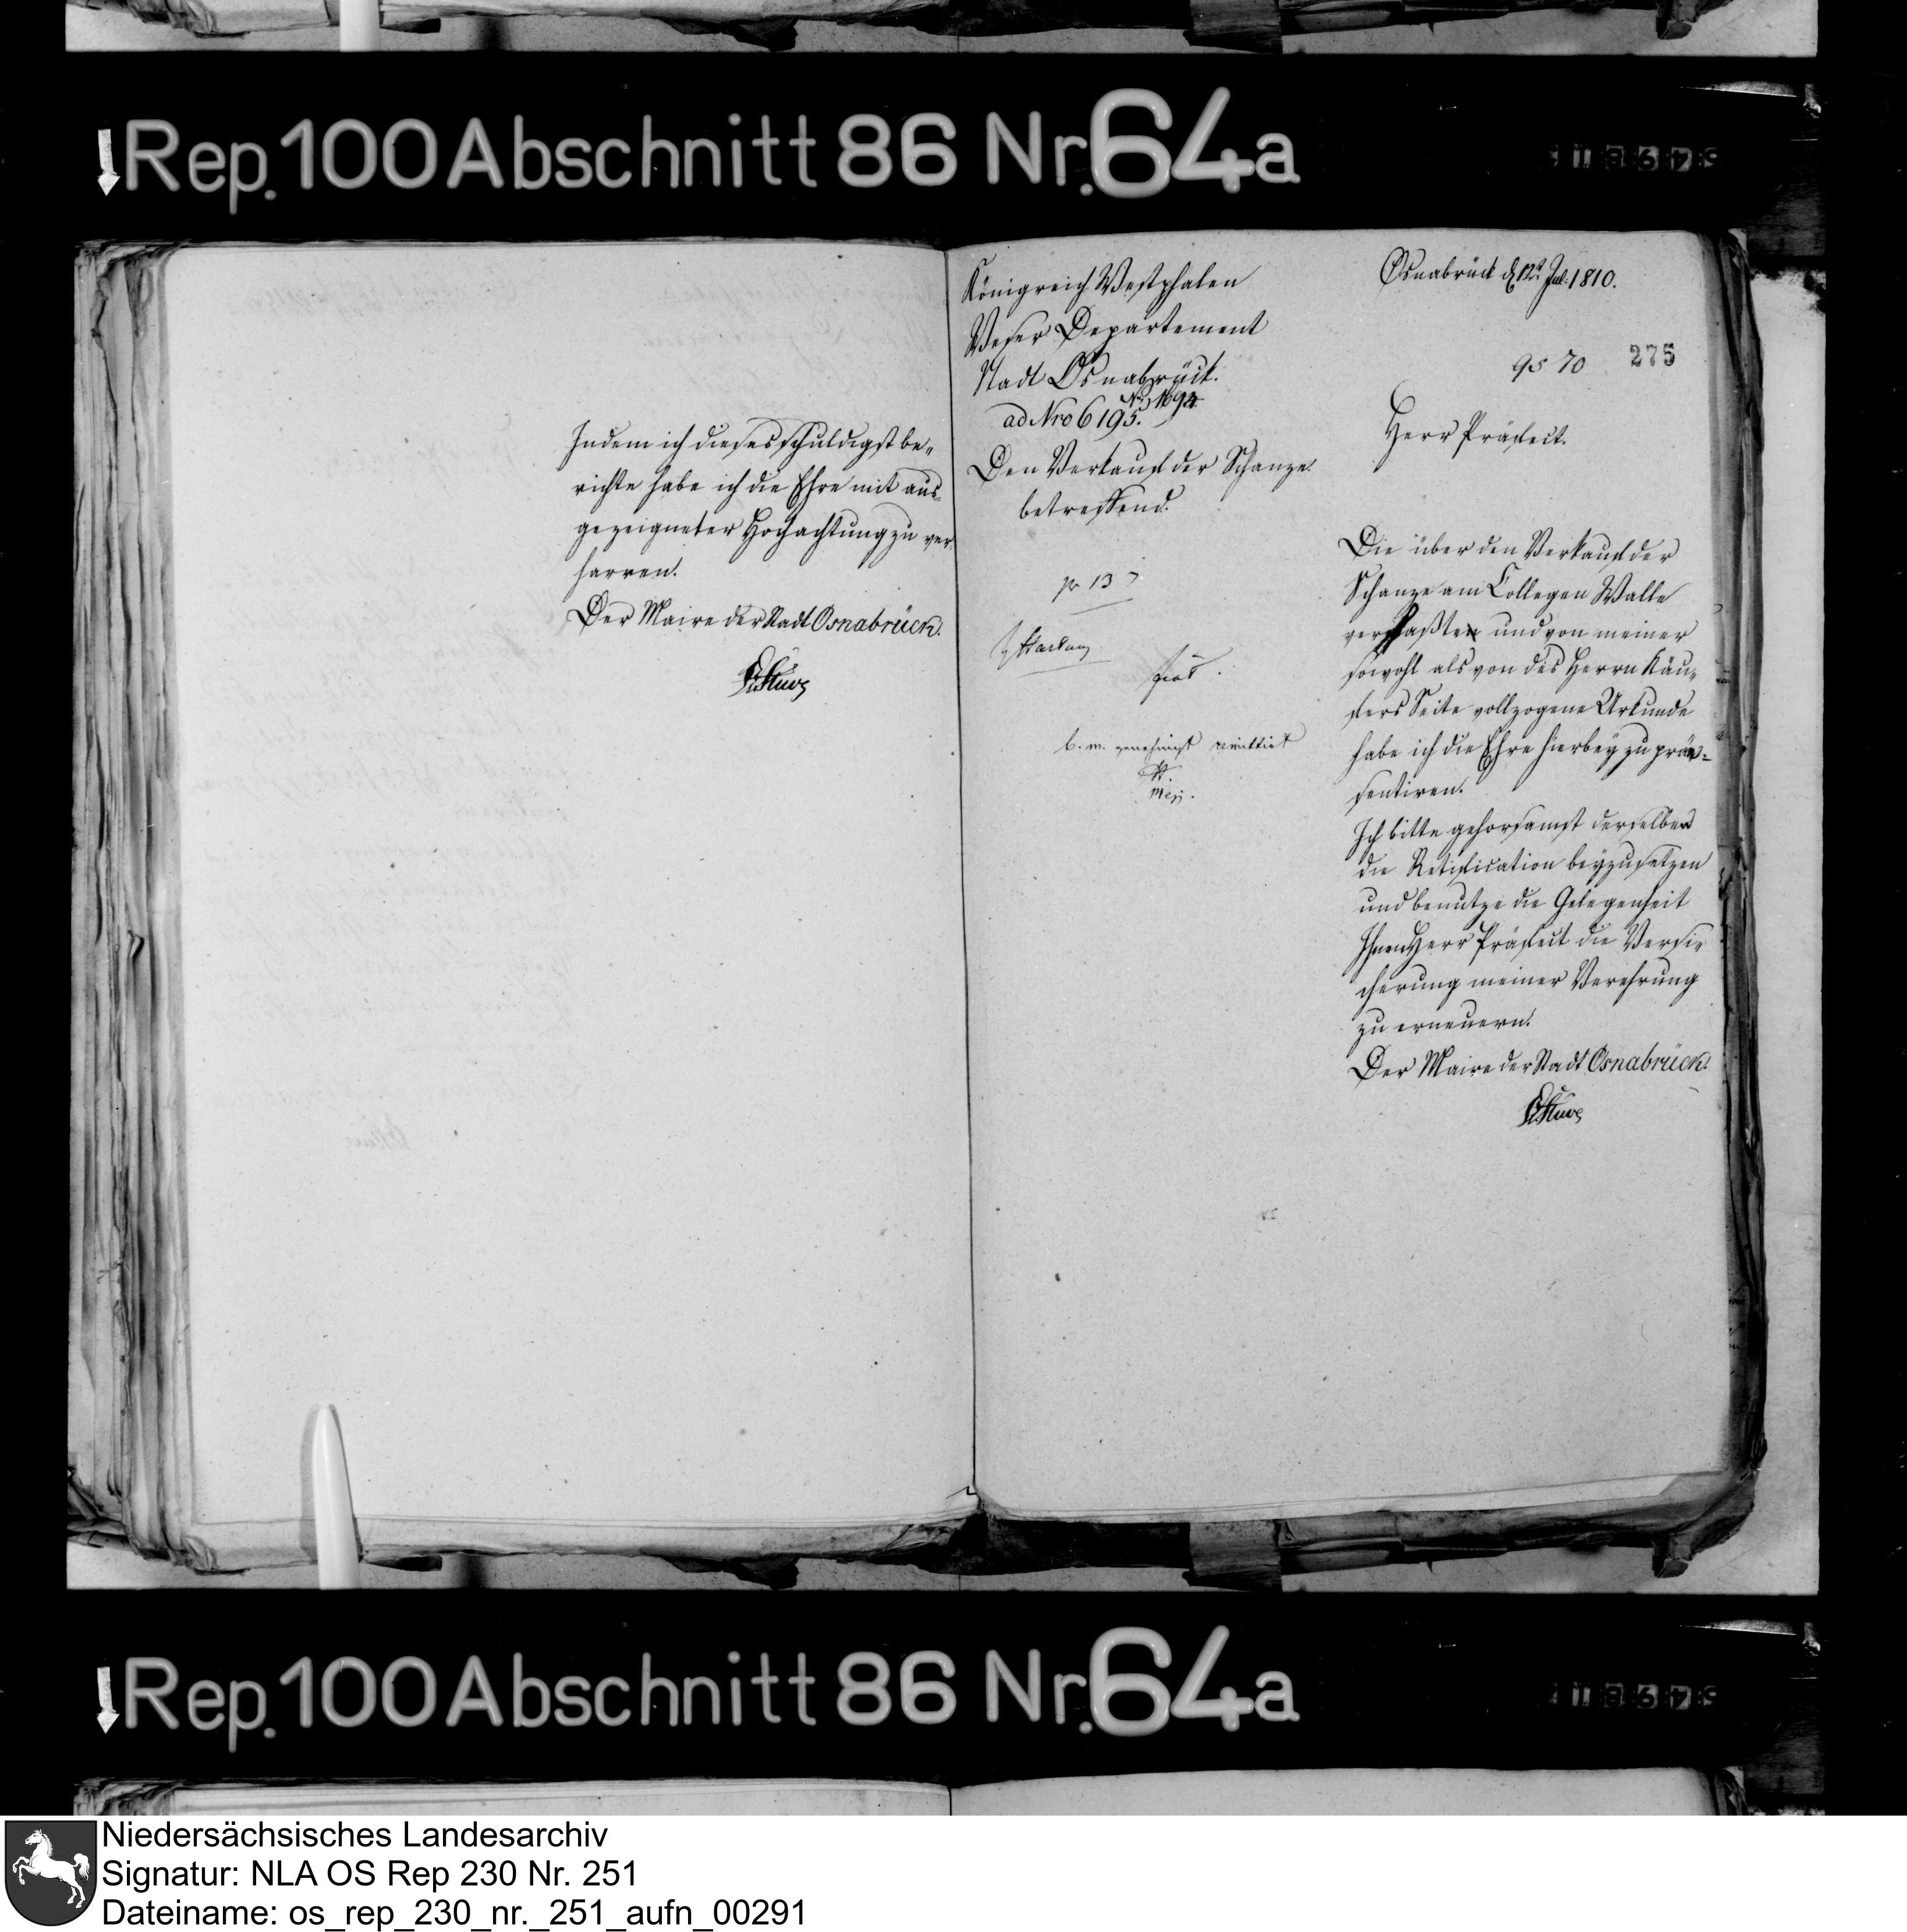 Rep. 100 Abschnitt 86 Nr. 64a
Indem ich dieses schuldigst be„
richte habe ich die Ehre mit aus„
gezeigneter Hochachtung zu ver„
harren.
Der Maire der Stadt Osnabrück.
Stüve
Königreich Westphalen
Weser Departement
Stadt Osnabrück.
ad Nro 6195.
Den Verkauf der Schanze
betreffend.
pr 13
b. m. genehmigt remittirt
Osnabrück d 12t Jul. 1810.
9570
275
Herr Präfect.
Die über den Verkauf der
Schanze am Collegen Walle
verfaßte und von meiner
sowohl als von des Herrn Käu„
fers Seite vollzogene Urkunde
habe ich die Ehre hierbey zu prä=
sentiren.
Ich bitte gehorsamst derselben
die Retification beyzusetzen
und benutze die Gelegenheit
Ihnen Herr Präfect die Versi„
cherung meiner Verehrung
zu erneuern.
Der Maire der Stadt Osnabrück.
Stüve
Rep. 100 Abschnitt 86 Nr. 64a
Niedersächsisches Landesarchiv
Signatur: NLA OS Rep 230 Nr. 251
Dateiname: os_rep_230_nr._251_aufn_00291